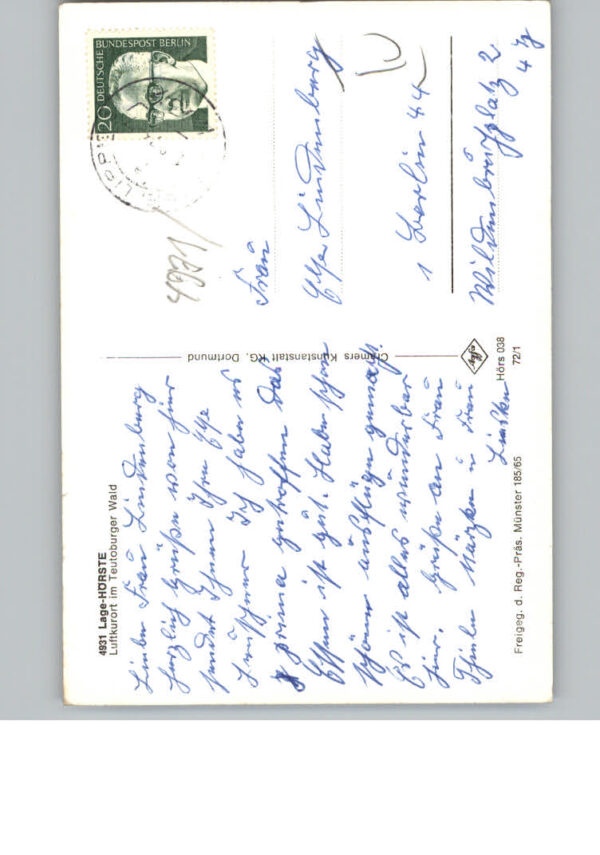 4931 Lage-HÖRSTE
Luftkurort im Teutoburger Wald
Liebe Frau Lindenberg
herzlich Grüße von hier
sendet Ihnen Ihre Else
Ich habe es
prima getroffen das
Essen ist gut. Habe schon
schöne Ausflüge gemacht.
Es ist alles wunderbar
hier. Grüße an Frau
Thiele u Frau
Cramers Kunstanstalt KG, Dortmund
Hörs 038
72/1
Freigeg. d. Reg.-Präs. Münster 185/65
20 DEUTSCHE BUNDESPOST BERLIN
Frau
Else Lindenberg
1 Berlin 44
Wildenbruchplatz 2